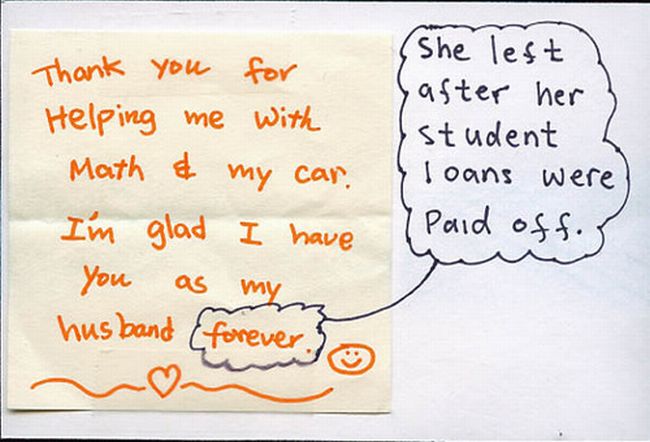 Thank you for
Helping me with
Math & my car.
I'm glad I have
you as my
husband forever.
She left
after her
student
loans were
Paid off.